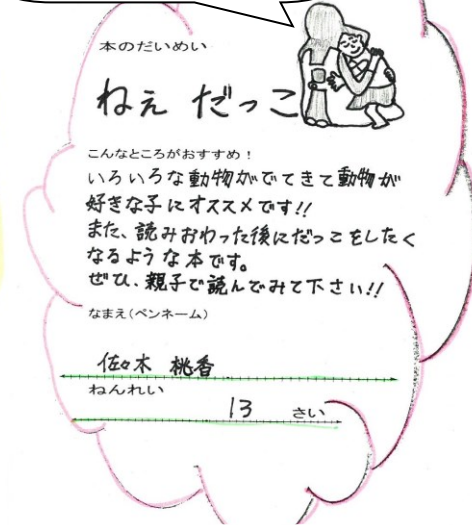 本のだいめい
ねえ だっこ
こんなところがおすすめ！
いろいろな動物がでてきて動物が
好きな子にオススメです!!
また、読みおわった後にだっこをしたく
なるような本です。
ぜひ、親子で読んでみて下さい!!
なまえ（ペンネーム）
佐々木 桃香
ねんれい
13 さい